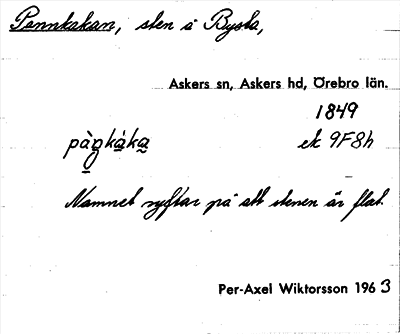 Pannkakan, sten i Bysta,
Askers sn, Askers hd, Örebro län.
1849
pàŋkáka̰ ek 9F8h
Namnet syftar på att stenen är flat.
Per-Axel Wiktorsson 1963